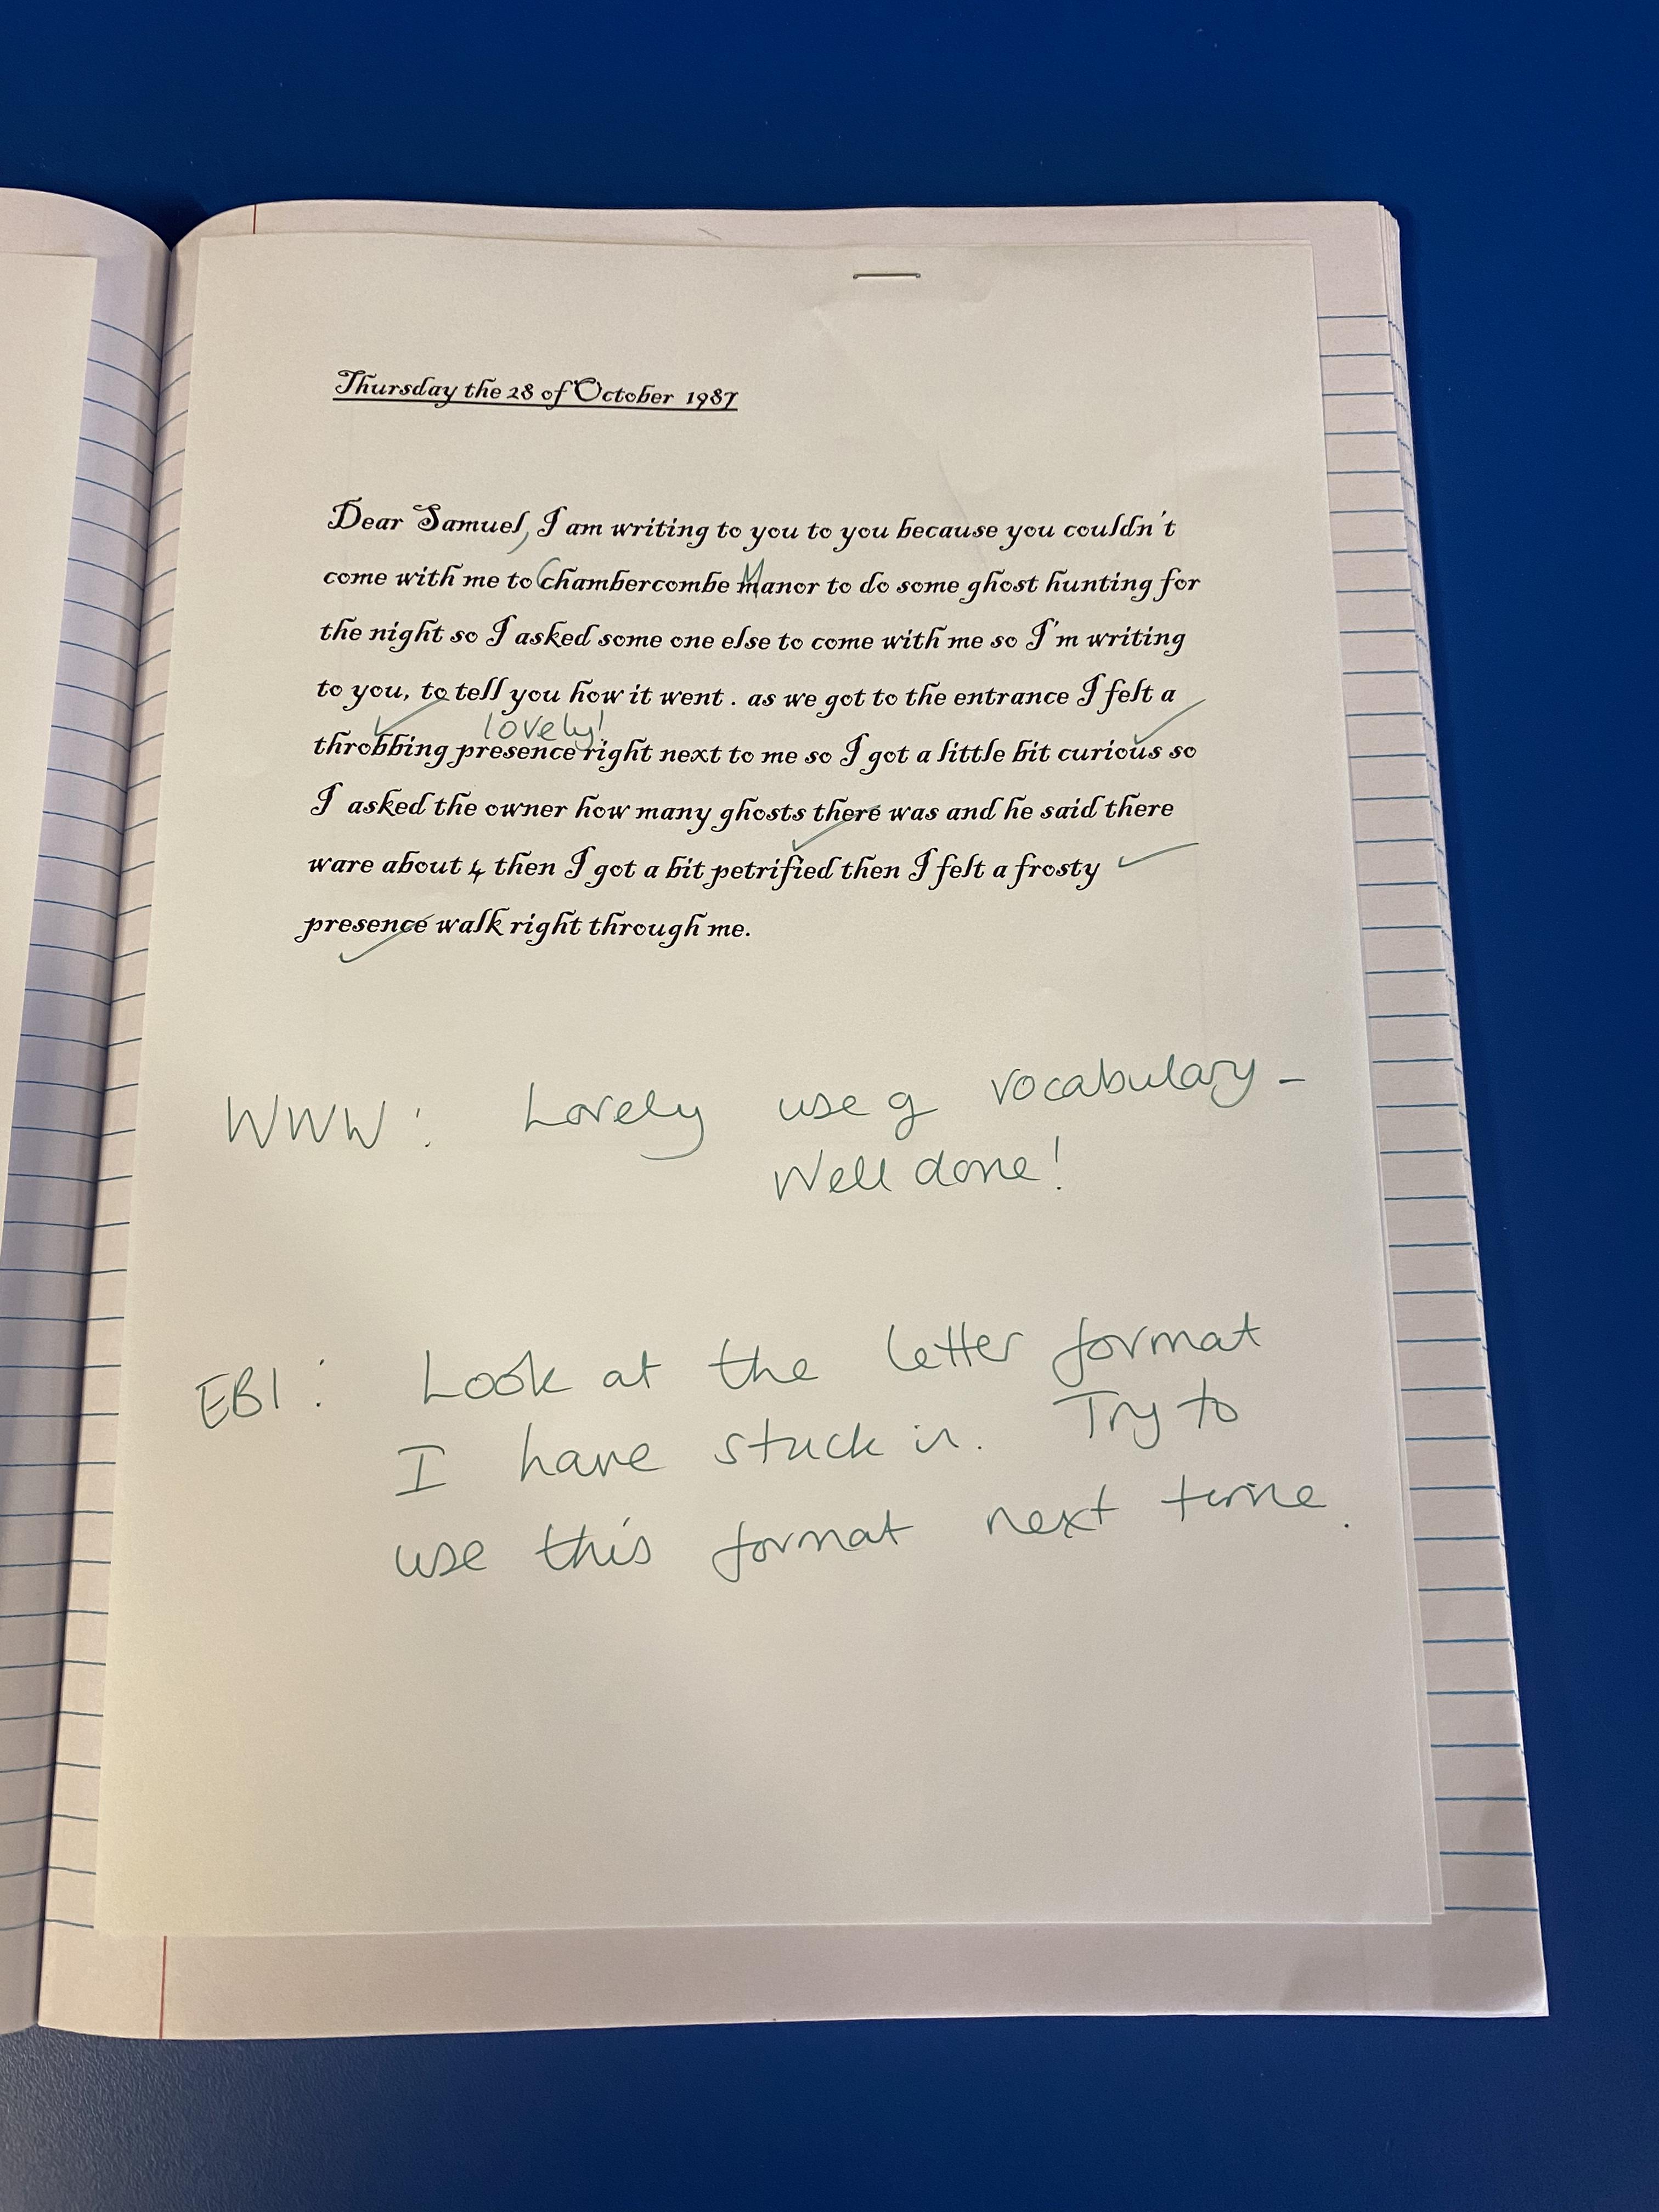 Thursday the 28 of October 1987
Dear Samuel, I am writing to you to you because you couldn't
come with me to Chambercombe Manor to do some ghost hunting for
the night so I asked some one else to come with me so I'm writing
to you, to tell you how it went. as we got to the entrance I felt a
lovely!
throbbing presence right next to me so I got a little bit curious so
I asked the owner how many ghosts there was and he said there
ware about 4 then I got a bit petrified then I felt a frosty
presence walk right through me.
WWW: Lovely use of vocabulary -
Well done!
EBI: Look at the letter format
I have stuck in. Try to
use this format next time.